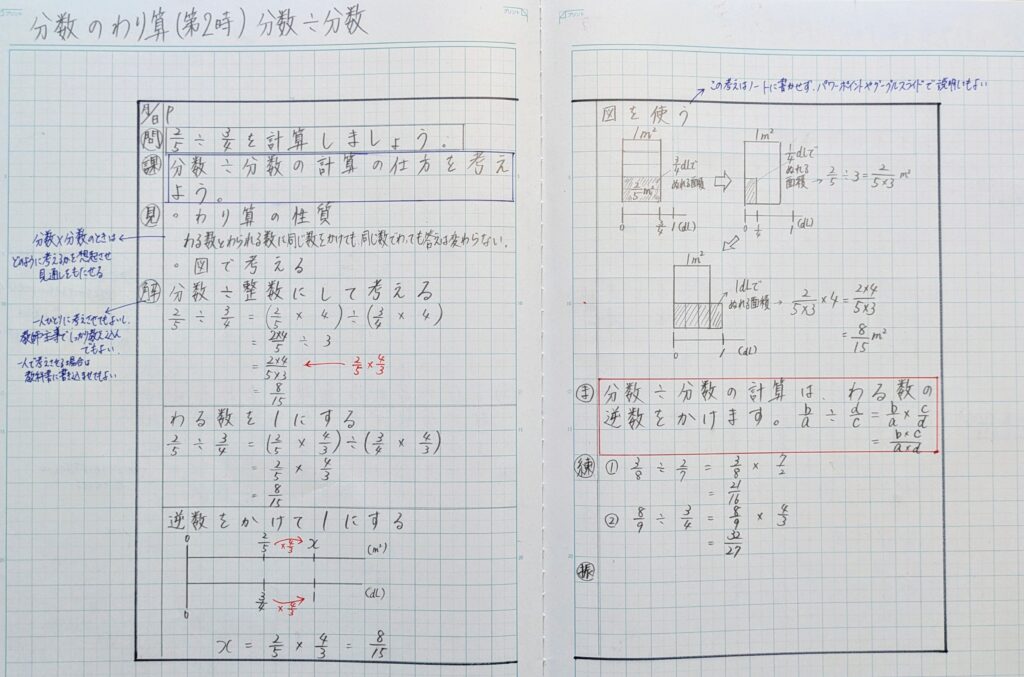 分数のわり算(第2時) 分数÷分数
月/日 P
問 2/5 ÷ 3/4 を計算しましょう。
課 分数÷分数の計算の仕方を考え
よう。
見 ・わり算の性質
わる数とわられる数に同じ数をかけても、同じ数でわっても答えは変わらない。
・図で考える
分数×分数のときは
どのように考えるかを想起させ
見通しをもたせる
解 分数÷整数にして考える
2/5 ÷ 3/4 = (2/5 × 4) ÷ (3/4 × 4)
= 2×4/5 ÷ 3
= 2×4/5×3 ← 2/5 × 4/3
= 8/15
一人ひとりに考えさせてもよいし、
教師主導でしっかり教え込んで
でもよい。
一人で考えさせる場合は
教科書に書き込ませてもよい
わる数を1にする
2/5 ÷ 3/4 = (2/5 × 4/3) ÷ (3/4 × 4/3)
= 2/5 × 4/3
= 8/15
逆数をかけて1にする
0 2/5 ×4/3 x (m²)
0 3/4 ×4/3 1 (dL)
x = 2/5 × 4/3 = 8/15
この考えはノートに書かせず、パワーポイントやグーグルスライドで説明してもよい
図を使う
1m²
3/4dLで
ぬれる面積
2/5 m²
0 3/4 1 (dL)
1m²
1/4dLで
ぬれる
面積 → 2/5 ÷ 3 = 2/5×3 m²
0 1/4 1 (dL)
1m²
1dLで
ぬれる面積 → 2/5×3 × 4 = 2×4/5×3
= 8/15 m²
0 1 (dL)
ま 分数÷分数の計算は、わる数の
逆数をかけます。 b/a ÷ d/c = b/a × c/d
= b×c/a×d
練 ① 3/8 ÷ 2/7 = 3/8 × 7/2
= 21/16
② 8/9 ÷ 3/4 = 8/9 × 4/3
= 32/27
振